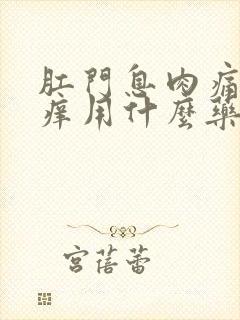 肛門息肉痛
癢用什麼藥
宮蓓蕾